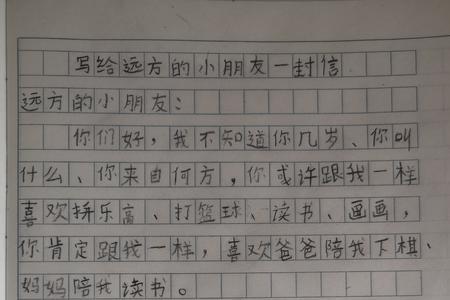 写给远方的小朋友一封信
远方的小朋友：
你们好，我不知道你几岁、你叫
什么、你来自何方，你或许跟我一样
喜欢拼乐高、打篮球、读书、画画，
你肯定跟我一样，喜欢爸爸陪我下棋、
妈妈陪我读书。